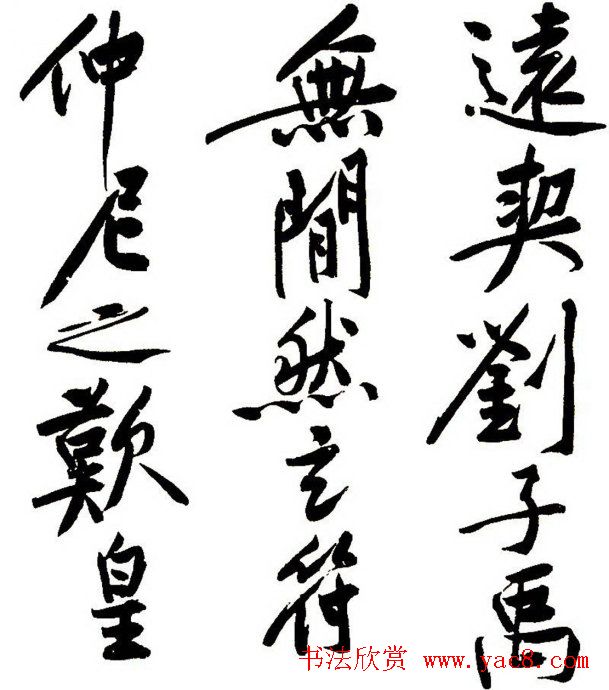 遠契劉子禹
無閒然玄符
仲尼之歎皇
书法欣赏 www.yac8.com